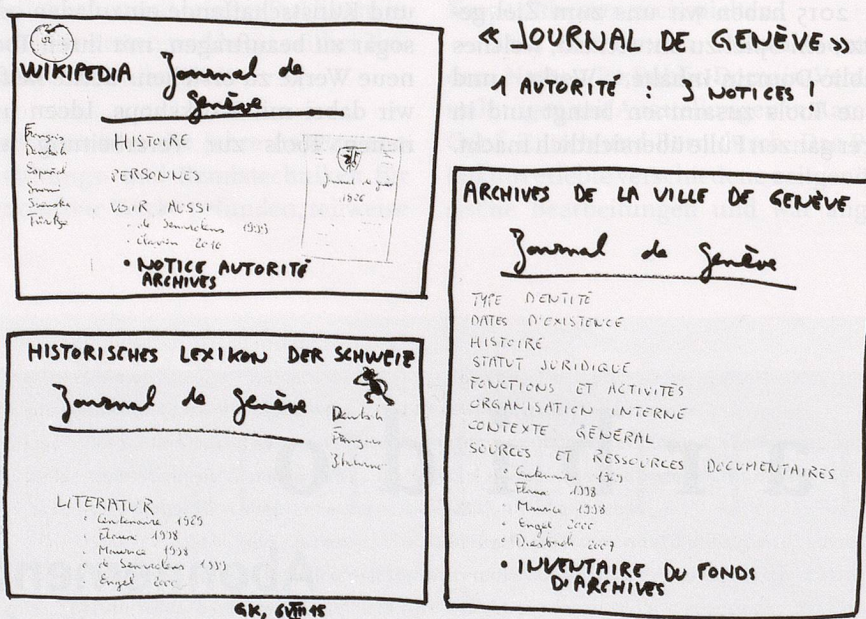 « JOURNAL DE GENÈVE »
1 AUTORITÉ : 3 NOTICES !
WIKIPEDIA
Journal de
Genève
Français
Deutsch
Español
Suomi
Svenska
Türkçe
HISTOIRE
PERSONNES
VOIR AUSSI
- de Senarclens 1999
- Clavien 2010
Journal de Genève
1826
• NOTICE AUTORITÉ
ARCHIVES
HISTORISCHES LEXIKON DER SCHWEIZ
Journal de Genève
Deutsch
Français
Italiano
LITERATUR
• Centenaire 1929
Elsner 1998
• Maurice 1998
• de Senarclens 1999
Engel 2000
GK, 6 VIII 15
ARCHIVES DE LA VILLE DE GENÈVE
Journal de Genève
TYPE D'ENTITÉ
DATES D'EXISTENCE
HISTOIRE
STATUT JURIDIQUE
FONCTIONS ET ACTIVITÉS
ORGANISATION INTERNE
CONTEXTE GÉNÉRAL
SOURCES ET RESSOURCES DOCUMENTAIRES
• Centenaire 1929
• 1998
• Maurice 1998
• Engel 2000
• 2007
• INVENTAIRE DU FONDS
D'ARCHIVES